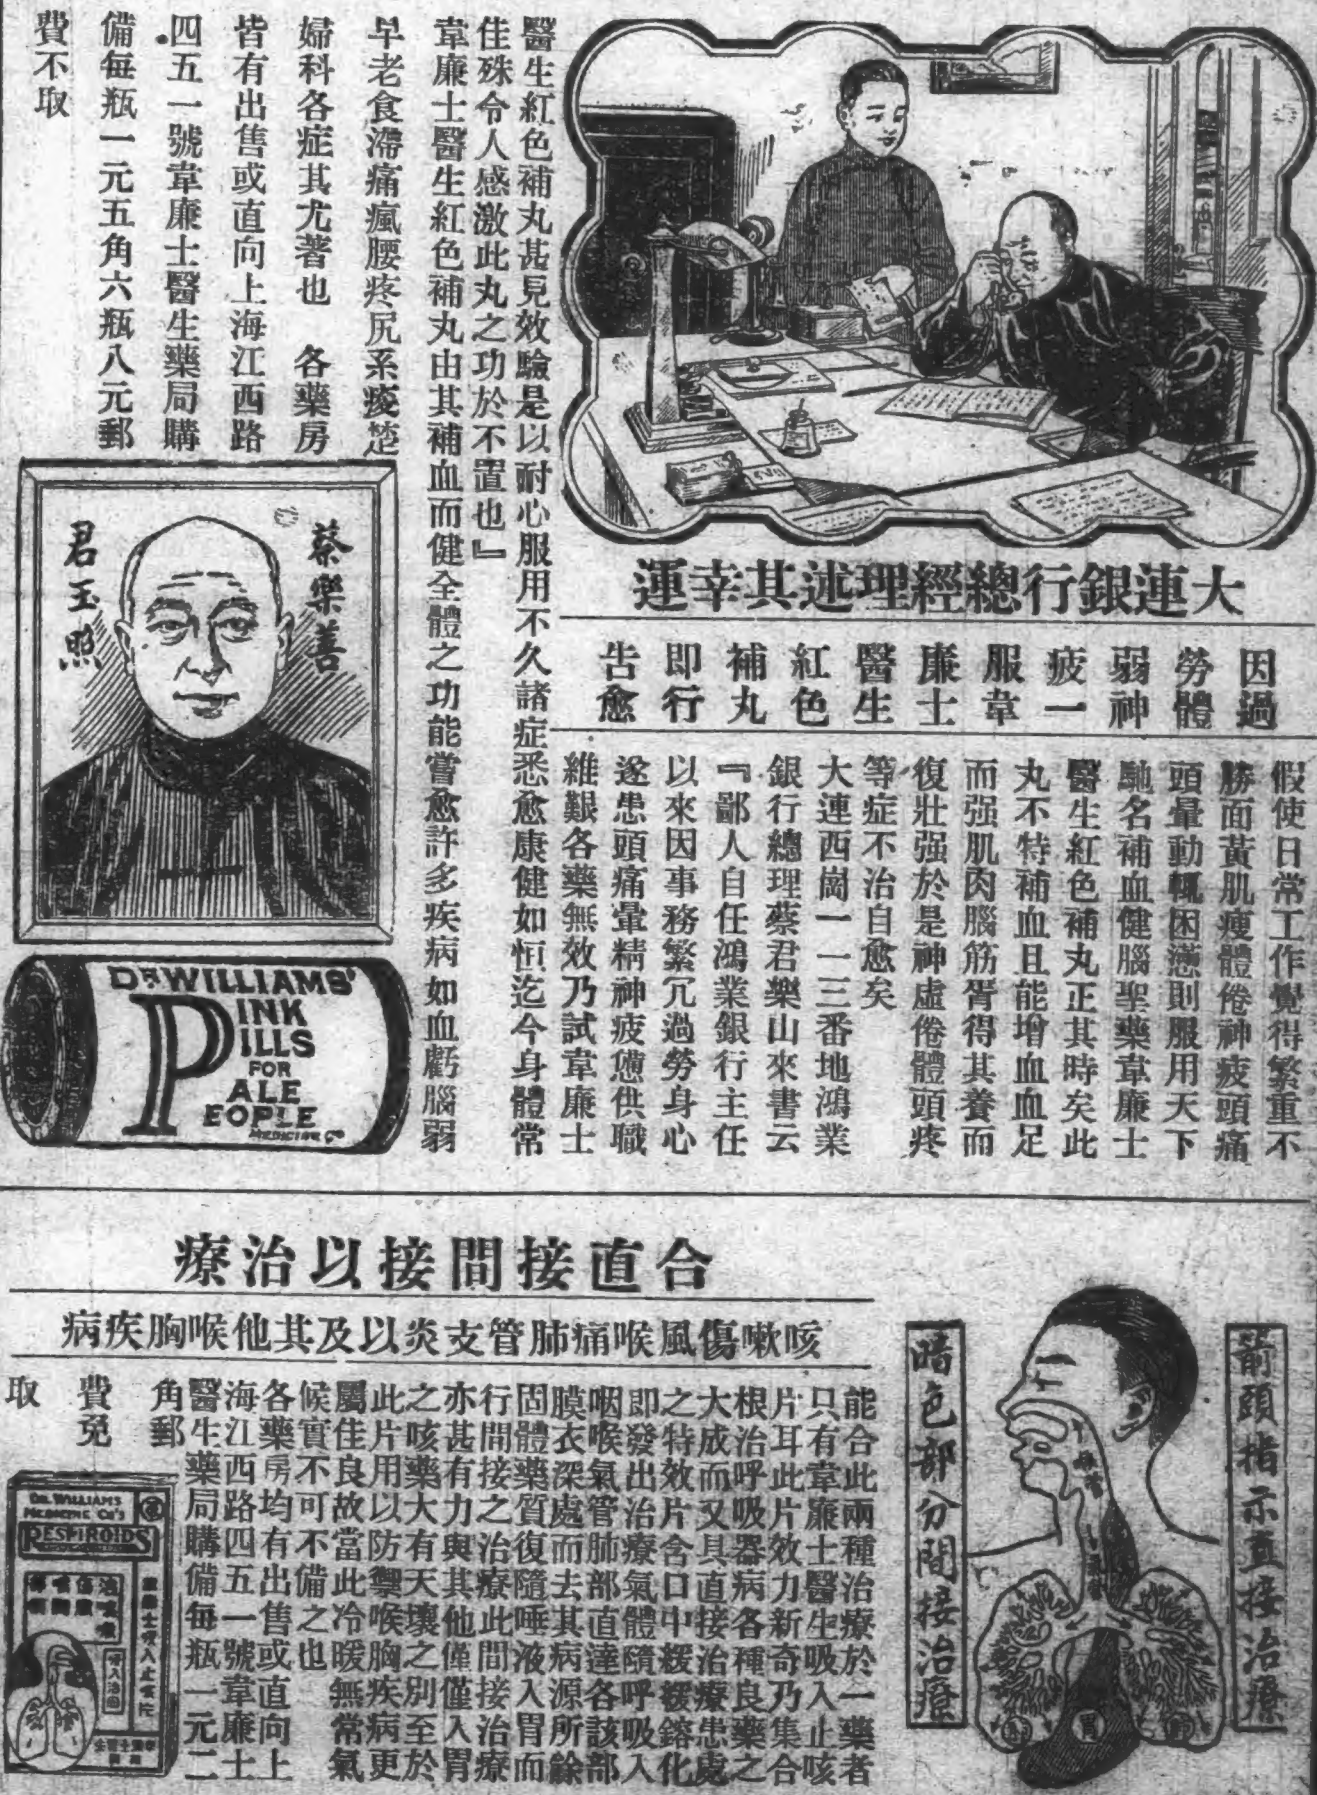 大連銀行總經理述其幸運
因過
勞體
弱神
疲一
服韋
廉士
醫生
紅色
補丸
即行
告愈
假使日常工作覺得繁重不
勝面黃肌瘦體倦神疲頭痛
頭暈動輒困憊則服用天下
馳名補血健腦聖藥韋廉士
醫生紅色補丸正其時矣此
丸不特補血且能增血血足
而强肌肉腦筋胥得其養而
復壯强於是神虛倦體頭疼
等症不治自愈矣
大連西崗一一三番地鴻業
銀行總理蔡君樂山來書云
『鄙人自任鴻業銀行主任
以來因事務繁冗過勞身心
遂患頭痛暈精神疲憊供職
維艱各藥無效乃試韋廉士
醫生紅色補丸甚見效驗是以耐心服用不久諸症悉愈康健如恒迄今身體常
佳殊令人感激此丸之功於不置也』
韋廉士醫生紅色補丸由其補血而健全體之功能嘗愈許多疾病如血虧腦弱
早老食滯痛瘋腰疼尻系痠楚
婦科各症其尤著也 各藥房
皆有出售或直向上海江西路
四五一號韋廉士醫生藥局購
備每瓶一元五角六瓶八元郵
費不取
蔡樂善
君玉照
DR. WILLIAMS'
PINK
PILLS
FOR
PALE
PEOPLE
MEDICINE Co
合直接間接以治療
咳嗽傷風喉痛肺管支炎以及其他喉胸疾病
箭頭指示直接治療
暗色部分間接治療
胃
肺
能合此兩種治療於一藥者
只有韋廉士醫生吸入止咳
片耳此片效力新奇乃集合
根治呼吸器病各種良藥之
大成而又具直接治療患處
之特效片含口中緩緩鎔化
即發出治療氣體隨呼吸入
咽喉氣管肺部直達各該部
膜衣深處而去其病源所餘
固體藥質復隨唾液入胃而
行間接之治療此間接治療
亦甚有力與其他僅僅入胃
之咳藥大有天壤之別至於
此片用以防禦喉胸疾病更
屬佳良故當此冷暖無常氣
候實不可不備之也
各藥房均有出售或直向上
海江西路四五一號韋廉士
醫生藥局購備每瓶一元二
角郵
費免
取
DR. WILLIAMS
MEDICINE Co's
RESPIROIDS